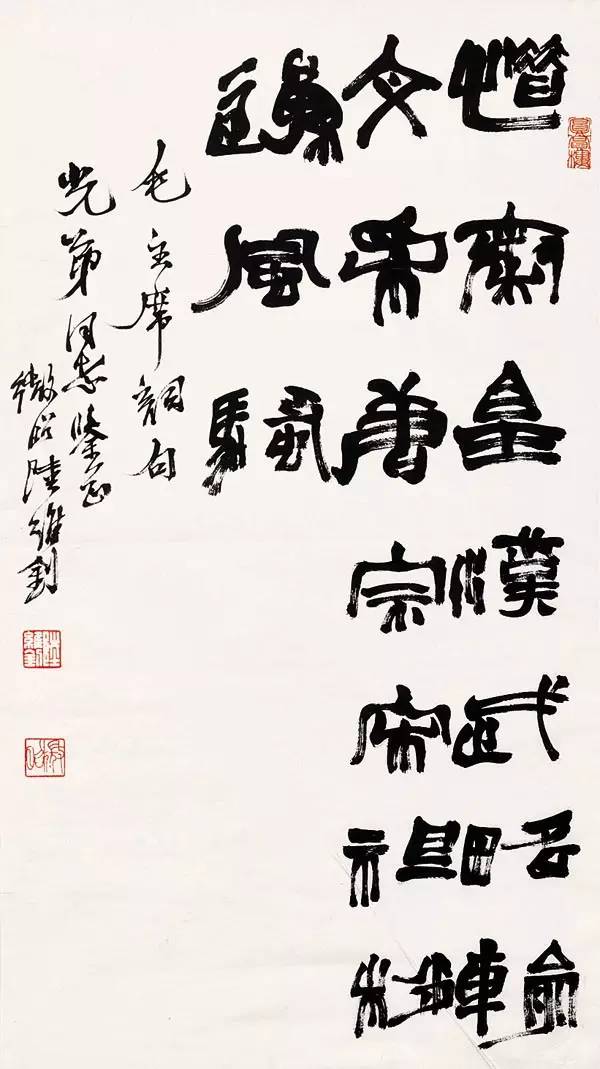 惜秦皇漢武略輸
文采唐宗宋祖稍
遜風騷
毛主席詞句
光第同志鑒正
微昭陸維釗
陸維釗